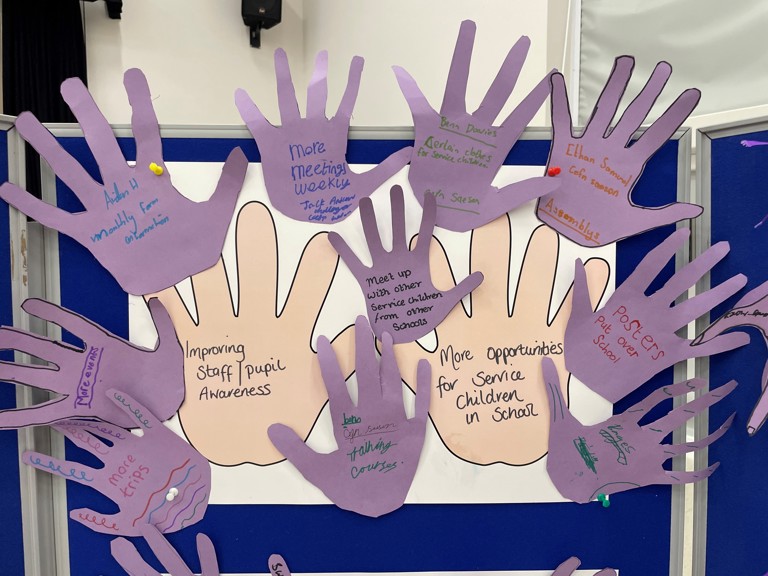 Aidan H
monthly form
More
Meetings
weekly
Benn Davies
Certain clothes
for service children
Cefn Saeson
Ethan Samuel
Cefn saeson
Assemblys
Meet up
with other
Service children
from other
Schools
Improving
Staff / Pupil
Awareness
More opportunities
for Service
Children
in School
Posters
Put over
School
More events
More
trips
Cefn saeson
talking
Courses.